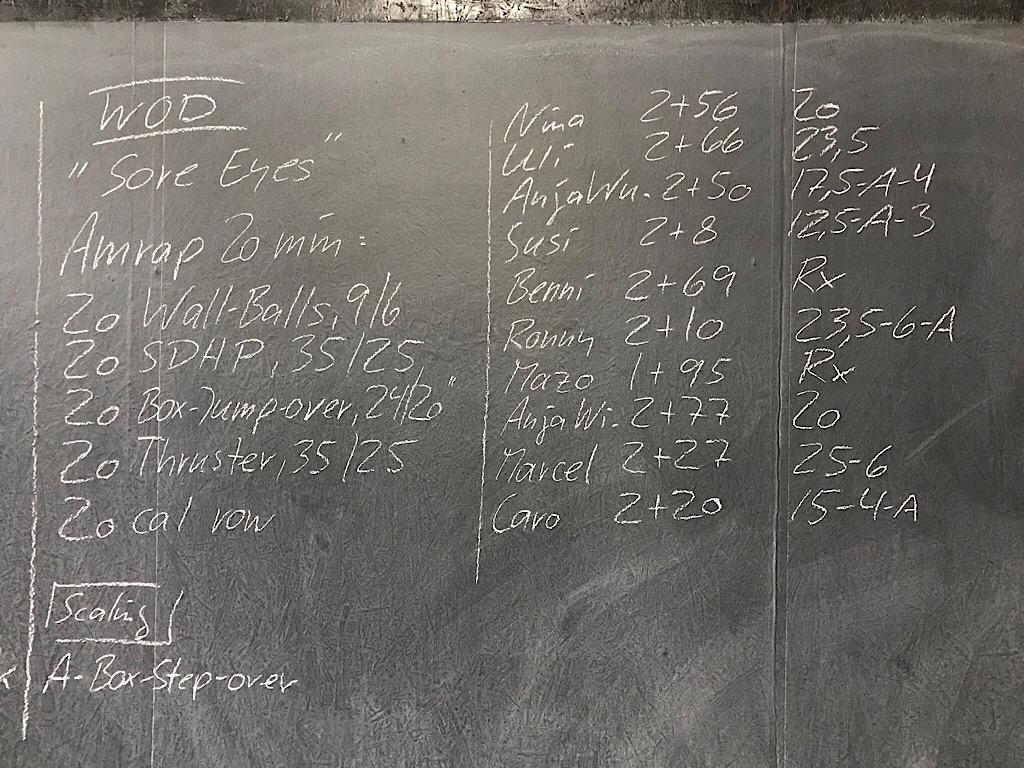 WOD
"Sore Eyes"
Amrap 20 min:
20 Wall-Balls, 9/6
20 SDHP, 35/25
20 Box-Jump-over, 24/20"
20 Thruster, 35/25
20 cal row
Scaling
A-Box-Step-over
Nina 2+56 20
Uli 2+66 23,5
AnjaWu. 2+50 17,5-A-4
Susi 2+8 12,5-A-3
Benni 2+69 Rx
Ronny 2+10 23,5-6-A
Mazo 1+95 Rx
AnjaWi. 2+77 20
Marcel 2+27 25-6
Caro 2+20 15-4-A